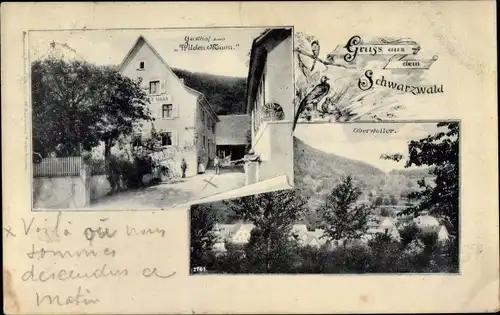 Gasthof zum
"Wilden Mann."
Gruss aus
dem
Schwarzwald
Oberweiler.
2761
x Voilà où nous
sommes
descendus ce
matin